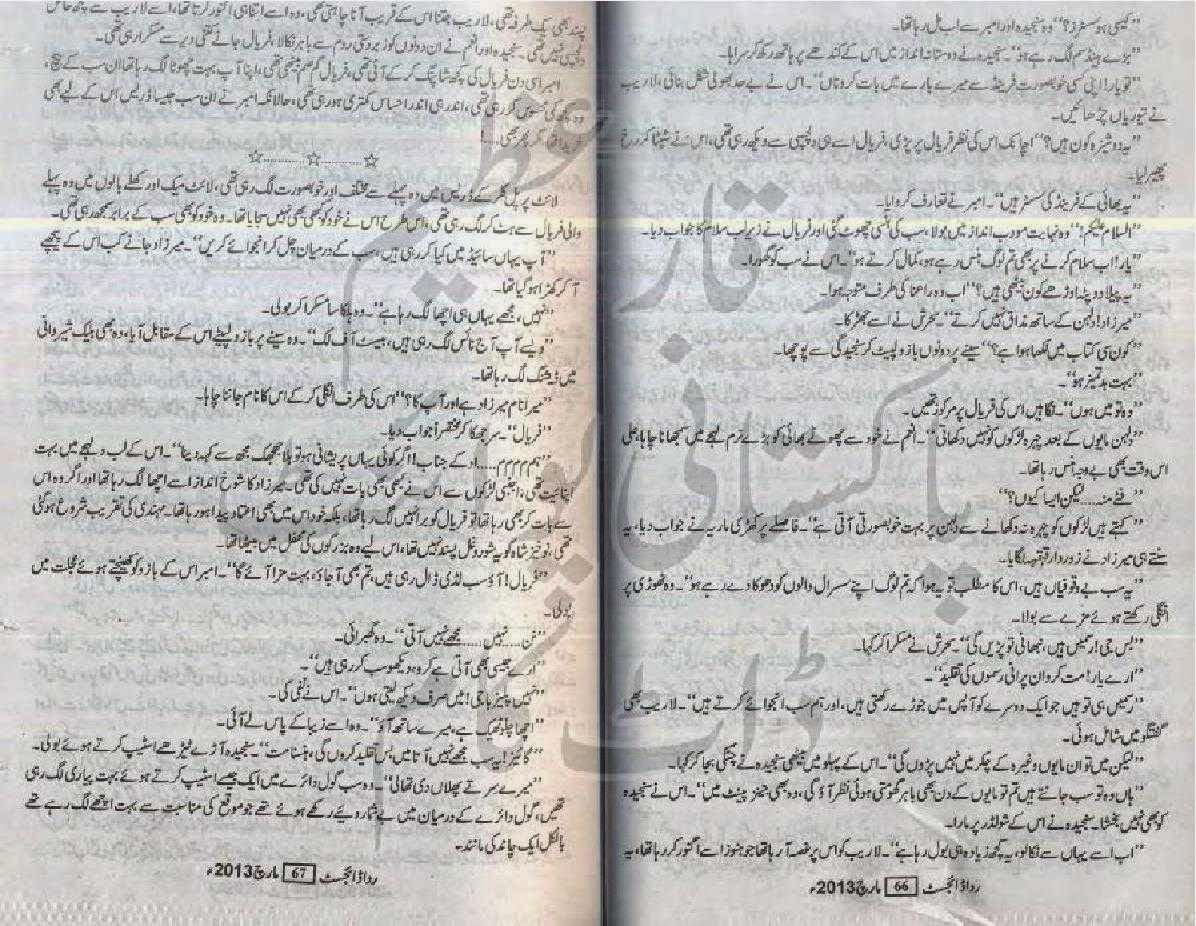 "کیسی ہو سسٹرز؟" وہ سنجیدہ اور امبر سے اب مل رہا تھا۔
"بڑے ہینڈسم لگ رہے ہو"۔ سنجیدہ نے دوستانہ انداز میں اس کے کندھے پر ہاتھ رکھ کر سراہا۔
"تو یار! اپنی کسی خوبصورت فرینڈ سے میرے بارے میں بات کرو ناں"۔ اس نے بے حد بھولی شکل بنائی، لاریب
نے تیوریاں چڑھائیں۔
"یہ دوشیزہ کون ہیں؟" اچانک اس کی نظر فریال پر پڑی، فریال اسے ہی دلچسپی سے دیکھ رہی تھی، اس نے سٹپٹا کر رخ
پھیر لیا۔
"یہ بھائی کے فرینڈ کی سسٹر ہیں"۔ امبر نے تعارف کروایا۔
"السلام علیکم!" وہ نہایت مودب انداز میں بولا، سب کی ہنسی چھوٹ گئی اور فریال نے زیر لب سلام کا جواب دیا۔
"یار! اب سلام کرنے پر بھی تم لوگ ہنس رہے ہو، کمال کرتے ہو"۔ اس نے سب کو گھورا۔
"یہ پیلا دوپٹہ اوڑھے کون بیٹھی ہیں؟" اب وہ راعنا کی طرف متوجہ ہوا۔
"میرزاد! دلہن کے ساتھ مذاق نہیں کرتے"۔ سحرش نے اسے جھڑکا۔
"کون سی کتاب میں لکھا ہوا ہے؟" سینے پر دونوں بازو لپیٹ کر سنجیدگی سے پوچھا۔
"بہت بدتمیز ہو"۔
"وہ تو میں ہوں"۔ نگاہیں اس کی فریال پر مرکوز تھیں۔
"دلہن مایوں کے بعد چہرہ لڑکوں کو نہیں دکھاتی"۔ انعم نے خود سے چھوٹے بھائی کو بڑے نرم لہجے میں سمجھانا چاہا، علی
اس وقت بھی بے وجہ ہنس رہا تھا۔
"فٹے منہ.... لیکن ایسا کیوں؟"
"کہتے ہیں لڑکوں کو چہرہ نہ دکھانے سے دلہن پر بہت خوبصورتی آتی ہے"۔ فاصلے پر کھڑی ماریہ نے جواب دیا، یہ
سنتے ہی میرزاد نے زوردار قہقہہ لگایا۔
"یہ سب بے وقوفیاں ہیں، اس کا مطلب تو یہ ہوا کہ تم لوگ اپنے سسرال والوں کو دھوکا دے رہے ہو"۔ وہ ٹھوڑی پر
انگلی رکھتے ہوئے مزے سے بولا۔
"بس جی! رسمیں ہیں، نبھانی تو پڑیں گی"۔ سحرش نے مسکرا کر کہا۔
"ارے یار! مت کرو ان پرانی رسموں کی تقلید"۔
"رسمیں ہی تو ہیں جو ایک دوسرے کو آپس میں جوڑے رکھتی ہیں، اور ہم سب انجوائے کرتے ہیں"۔ لاریب بھی
گفتگو میں شامل ہوئی۔
"لیکن میں تو ان مایوں وغیرہ کے چکر میں نہیں پڑوں گی"۔ اس کے پہلو میں بیٹھی سنجیدہ نے چٹکی بجا کر کہا۔
"ہاں وہ تو سب جانتے ہیں تم تو مایوں کے دن بھی باہر گھومتی ہوئی نظر آؤ گی، وہ بھی جینز پینٹ میں"۔ اس نے سنجیدہ
کو بھی نہیں بخشا۔ سنجیدہ نے اس کے شولڈر پر مارا۔
"اب اسے یہاں سے نکالو، یہ کچھ زیادہ ہی بول رہا ہے"۔ لاریب کو اس پر غصہ آ رہا تھا جو ہنوز اسے اگنور کر رہا تھا، یہ
رداڈائجسٹ 66 مارچ 2013ء
پسند بھی یک طرفہ تھی، لاریب جتنا اس کے قریب آنا چاہتی تھی، وہ اسے اتنا ہی اگنور کرتا تھا، اسے لاریب سے کچھ خاص
دلچسپی نہیں تھی۔ سنجیدہ اور انعم نے ان دونوں کو زبردستی روم سے باہر نکالا، فریال جانے کتنی دیر سے مسکرا رہی تھی۔
امبر اسی دن فریال کی کچھ شاپنگ کر کے آئی تھی، فریال گم صم بیٹھی تھی، اپنا آپ بہت چھوٹا لگ رہا تھا ان سب کے بیچ،
وہ کمی محسوس کر رہی تھی، اندر ہی اندر احساس کمتری ہو رہی تھی، حالانکہ امبر نے ان سب جیسا ڈریس اس کے لیے بھی
خریدا تھا، مگر پھر بھی....
☆..........☆..........☆
لائٹ پرپل کلر کے ڈریس میں وہ پہلے سے مختلف اور خوبصورت لگ رہی تھی، لائٹ میک اور کھلے بالوں میں وہ پہلے
والی فریال سے ہٹ کر لگ رہی تھی، اس طرح اس نے خود کو کبھی بھی نہیں سجایا تھا۔ وہ خود کو بھی سب کے برابر سمجھ رہی تھی۔
"آپ یہاں سائیڈ میں کیا کر رہی ہیں، سب کے درمیان چل کر انجوائے کریں"۔ میرزاد جانے کب اس کے پیچھے
آ کر کھڑا ہو گیا تھا۔
"نہیں، مجھے یہاں ہی اچھا لگ رہا ہے"۔ وہ ہلکا سا مسکرا کر بولی۔
"ویسے آپ آج نائس لگ رہی ہیں، بیسٹ آف لک"۔ وہ سینے پر بازو لپیٹے اس کے مقابل آیا، وہ بھی بلیک شیروانی
میں ڈیشنگ لگ رہا تھا۔
"میرا نام میرزاد ہے اور آپ کا؟" اس کی طرف انگلی کر کے اس کا نام جاننا چاہا۔
"فریال"۔ سر جھکا کر مختصراً جواب دیا۔
"ہم م م م.... اوکے جناب! اگر کوئی یہاں پریشانی ہو تو بلا جھجک مجھ سے کہہ دینا"۔ اس کے لب و لہجے میں بہت
اپنائیت تھی، اجنبی لڑکوں سے اس نے کبھی بھی بات نہیں کی تھی۔ میرزاد کا شوخ انداز اسے اچھا لگ رہا تھا اور اگر وہ اس
سے بات کر بھی رہا تھا تو فریال کو برا نہیں لگ رہا تھا، بلکہ خود اس میں بھی اعتماد پیدا ہو رہا تھا۔ مہندی کی تقریب شروع ہو گئی
تھی، نوتیز شاہ کو یہ شور و غل پسند نہیں تھا، اس لیے وہ بزرگوں کی محفل میں بیٹھا تھا۔
"فریال! آؤ سب لڈی ڈال رہی ہیں، تم بھی آ جاؤ، بہت مزا آئے گا"۔ امبر اس کے بازو کو کھینچتے ہوئے عجلت میں
بولی۔
"نن.... نہیں.... مجھے نہیں آتی"۔ وہ گھبرائی۔
"ارے جیسی بھی آتی ہے کرو وہ دیکھو سب کر رہی ہیں"۔
"نہیں پلیز باجی! میں صرف دیکھ لیتی ہوں"۔ اس نے نفی کی۔
"اچھا چلو ٹھیک ہے، میرے ساتھ آؤ"۔ وہ اسے زیبا کے پاس لے آئی۔
"گائیز! یہ سب مجھے نہیں آتا میں بس تقلید کروں گی، ہنسنا مت"۔ سنجیدہ آڑے ٹیڑھے اسٹیپ کرتے ہوئے بولی۔
"میرے سر تے پھلاں دی تھالی"۔ وہ سب گول دائرے میں ایک جیسے اسٹیپ کرتے ہوئے بہت پیاری لگ رہی
تھیں، گول دائرے کے درمیان میں بے شمار دیئے رکھے ہوئے تھے جو موقع کی مناسبت سے بہت اچھے لگ رہے تھے
بالکل ایک چاند کی مانند۔
رداڈائجسٹ 67 مارچ 2013ء
وقار عظیم
پاکستانی پوائنٹ
ڈاٹ کام